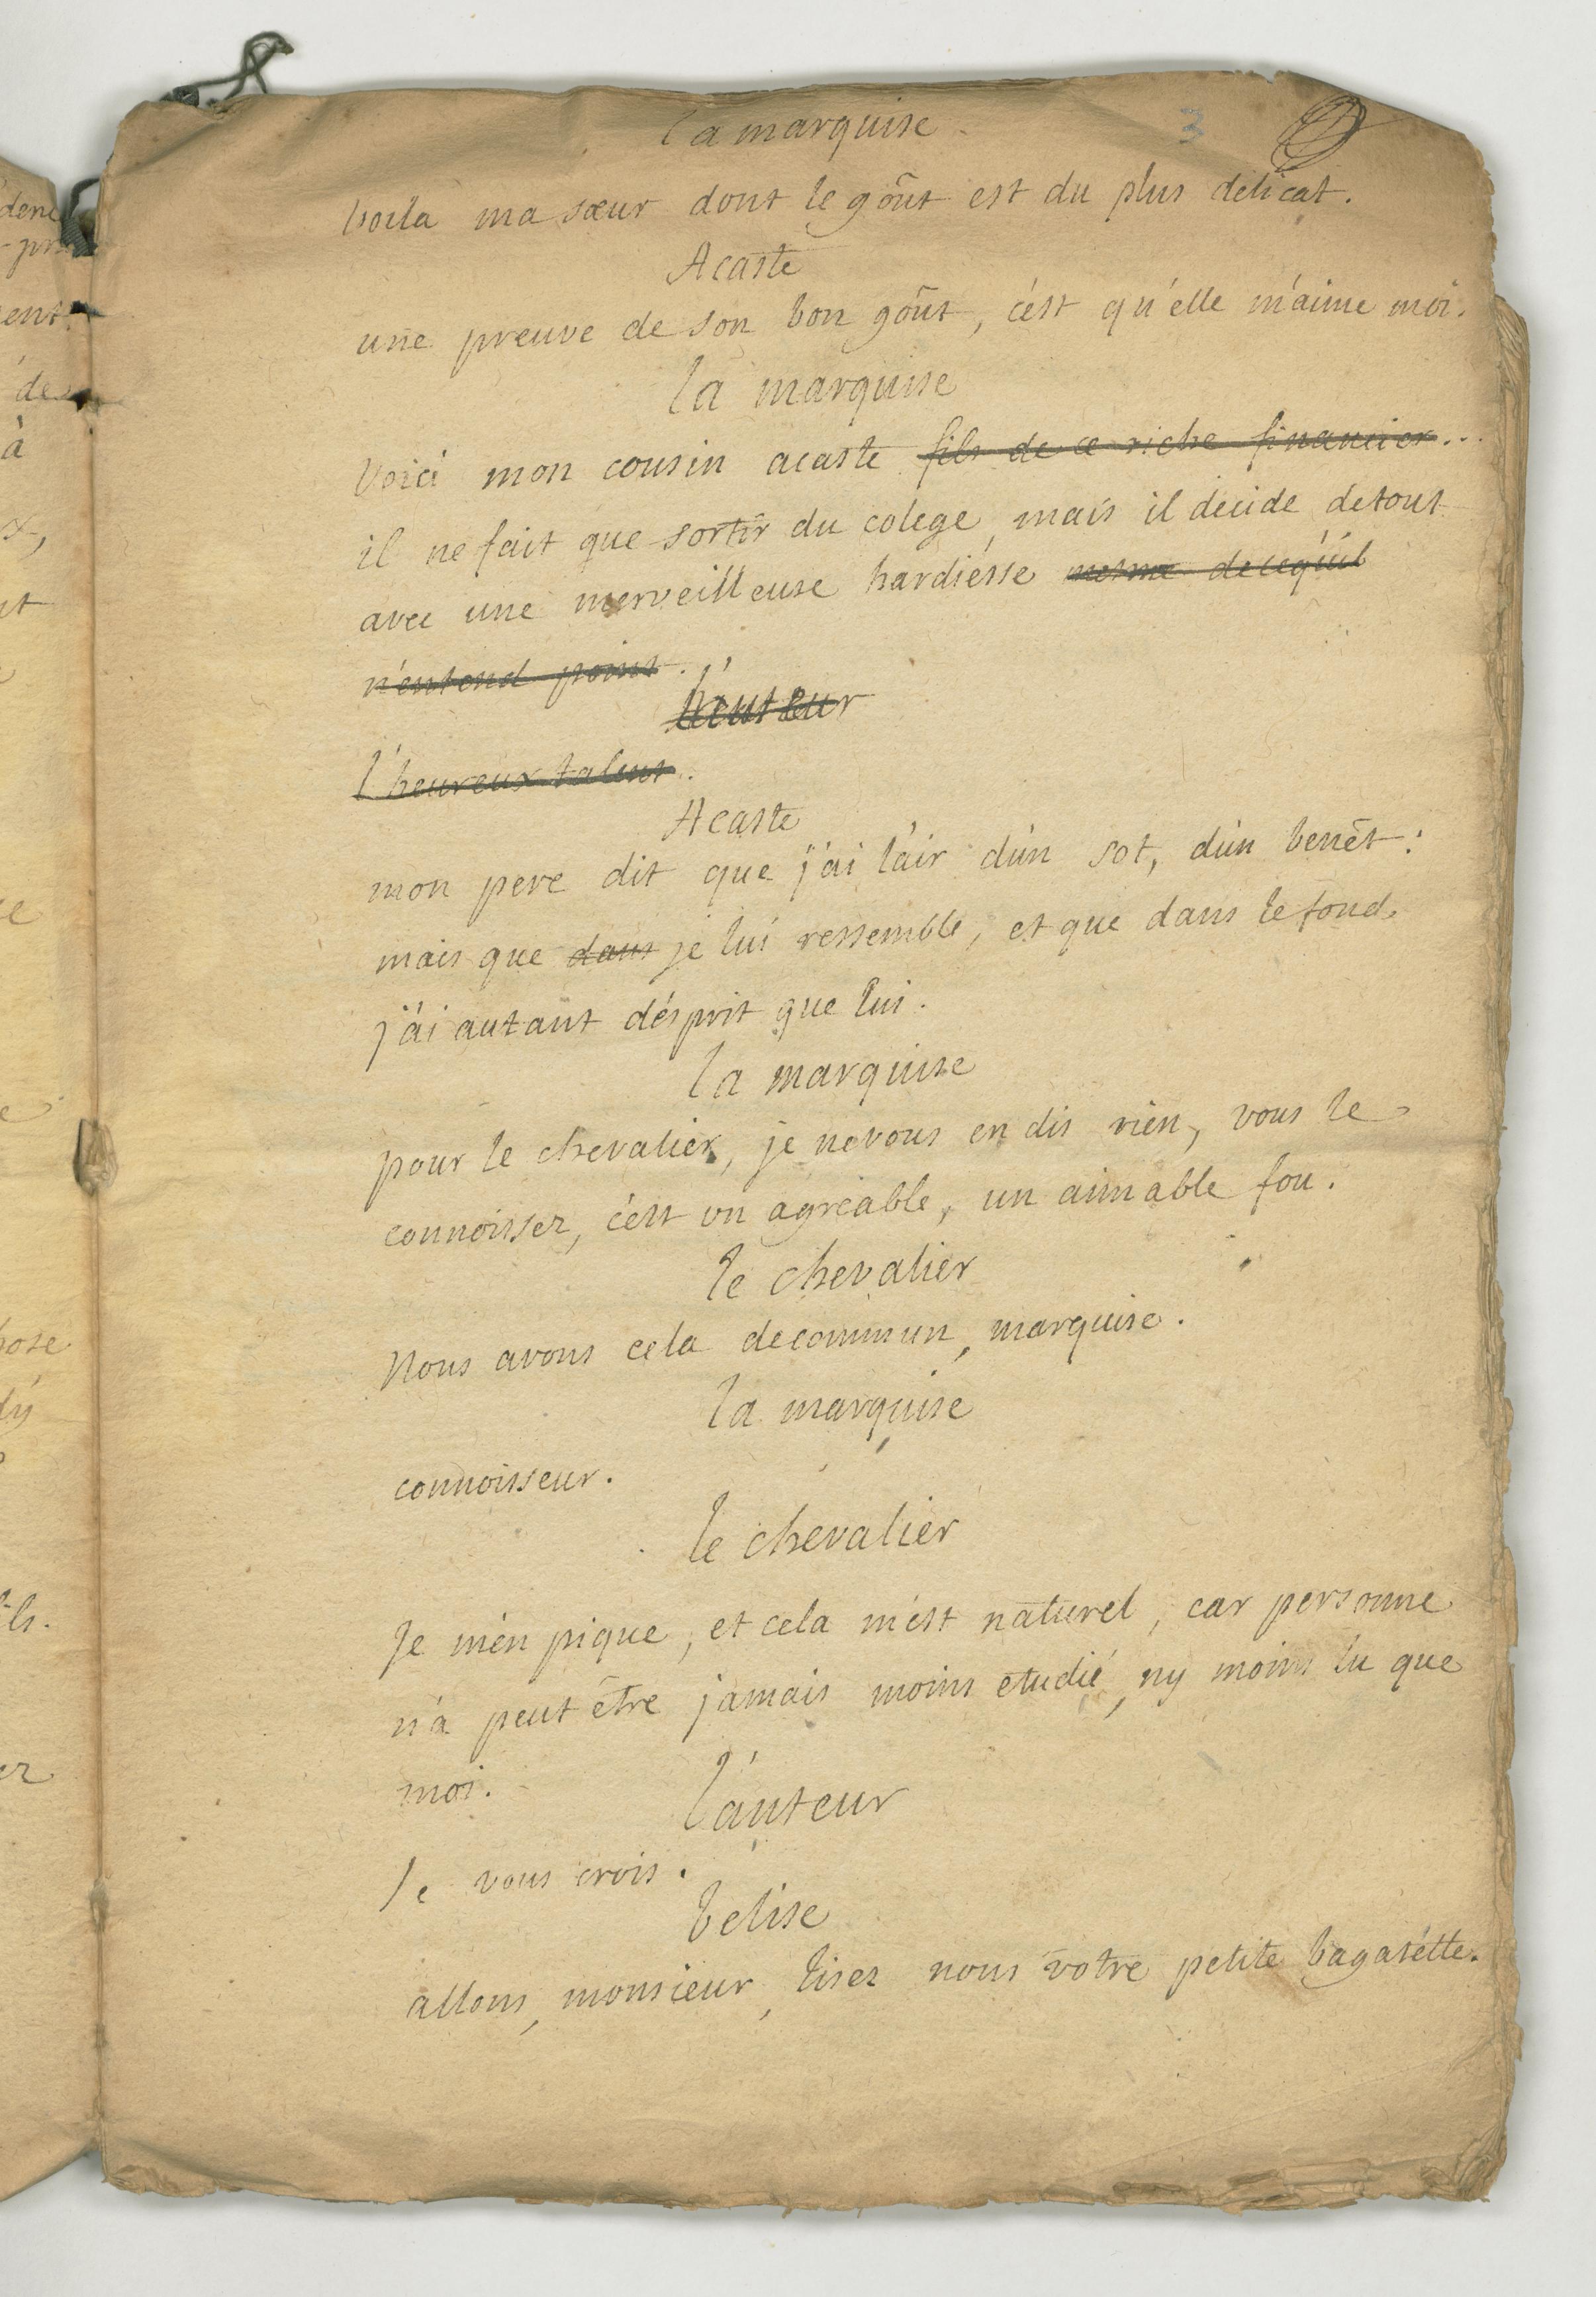 la marquise
3
Voila ma sœur dont le goût est du plus delicat.
Acaste
une preuve de son bon goût, c'est qu'elle m'aime moi.
la marquise
Voici mon cousin acaste fils de ce riche financier...
il ne fait que sortir du colege, mais il decide de tout
avec une merveilleuse hardiésse mesme de ce qu'il
n'entend point.
l'auteur
l'heureux talent.
Acaste
mon pere dit que j'ai l'air d'un sot, d'un benêt:
mais que dans je lui ressemble, et que dans le fond
j'ai autant d'ésprit que lui.
la marquise
pour le chevalier, je ne vous en dis rien, vous le
connoissez, c'est un agréable, un aimable fou.
le chevalier
Nous avons cela de commun, marquise.
la marquise
connoisseur.
le chevalier
Je m'en pique, et cela m'est naturel, car personne
n'a peut être jamais moins etudié, ny moins lu que
moi.
l'auteur
Je vous crois.
belise
allons, monsieur, lisez nous votre petite bagatélle.
denc
ent.
de
à
x,
e
pose
dy
ls.
ez